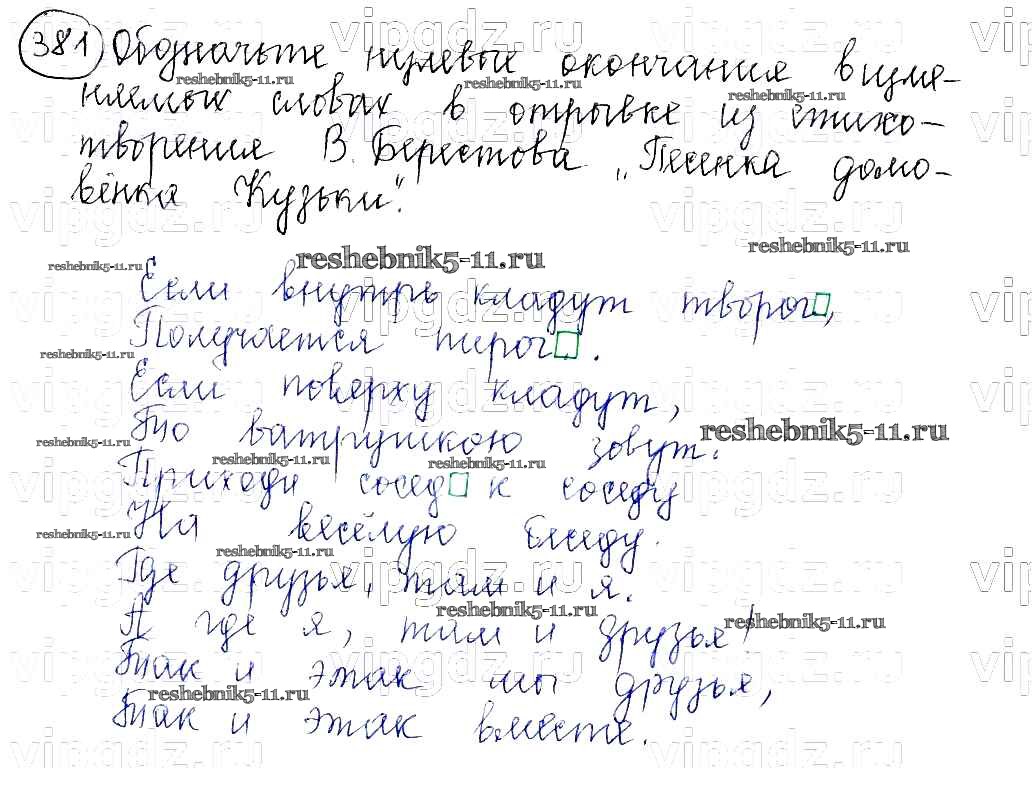 381 Обозначьте нулевые окончания в изме-
няемых словах в отрывке из стихо-
творения В. Берестова „Песенка домо-
вёнка Кузьки".
reshebnik5-11.ru
Если внутрь кладут творог,
Получается пирог.
Если поверху кладут,
То ватрушкою зовут.
Приходи сосед к соседу
На весёлую беседу.
Где друзья, там и я.
А где я, там и друзья!
Так и этак мы друзья,
Так и этак вместе.
vipgdz.ru